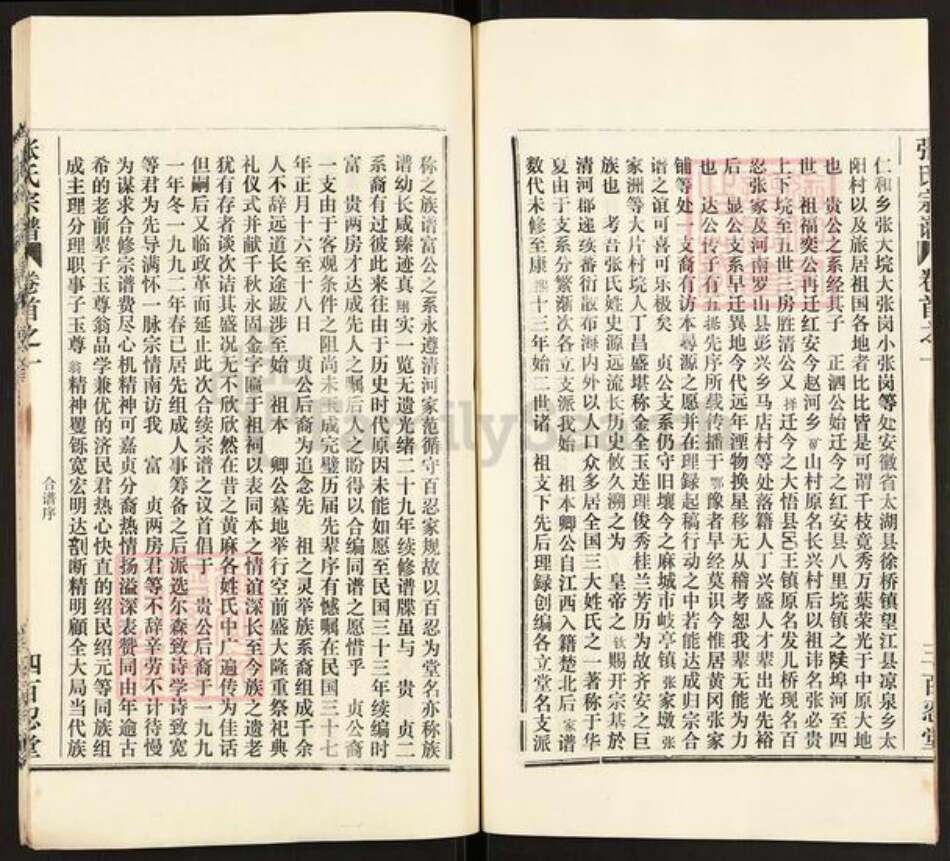 张氏宗谱 卷首之一 三 百忍堂
仁和乡张大垸大张岗小张岗等处安徽省太湖县徐桥镇望江县凉泉乡太
阳村以及旅居祖国各地者比比皆是可谓千枝竟秀万叶荣光于中原大地
也 贵公之系经其子 正泗公始迁今之红安县八里垸镇之陡埠河至四
世 祖福奕公再迁红安今赵河乡矿山村原名长兴村后以祖讳名张必贵
上下垸至五世三房胜清公又择迁今之大悟县吕王镇原名发儿桥现名百
忍张家及河南罗山县彭兴乡马店村等处落籍人丁兴盛人才辈出光先裕
后 显公支系早迁異地今代远年湮物换星移无从稽考恕我辈无能为力
也 达公传子有五据先序所载传播于鄂豫者早经莫识今惟居黄冈张家
铺等处一支裔有访本尋源之愿并在理録起稿行动之中若能达成归宗合
谱之谊可喜可乐极矣 贞公支系仍守旧壤今之麻城市岐亭镇张家墩张
家洲等大片村垸人丁昌盛堪称金全玉连理俊秀桂兰芳历为故齐安之巨
族也 考吾张氏姓史源远流长历史攸久溯之为 皇帝之钦赐开宗基於
清河郡递续蕃衍散布海内外以人口众多居全国三大姓氏之一著称于华
夏由于支系分繁渐次各立支派我始 祖本卿公自江西入籍楚北后家谱
数代未修至康熙十三年始二世诸 祖支下先后理録创编各立堂名支派
称之族谱富公之系永遵清河家范循守百忍家规故以百忍为堂名亦称族
谱幼长咸臻迹真翔实一览无遗光绪二十九年续修谱牒虽与 贵 贞二
系裔有过彼此来往由于历史时代原因未能如愿至民国三十三年续编时
富 贵两房才达成先人之嘱后人之盼得以合编同谱之愿惜乎 贞公裔
一支由于客观条件之阻尚未玉成完璧历届先辈序有憾嘱在民国三十七
年正月十六至十八日 贞公后裔为追念先 祖之灵举族系裔组成千余
人不辞远道长途跋涉至始 祖本 卿公墓地举行空前盛大隆重祭祀典
礼仪式并献千秋永固金字匾于祖祠以表同本之情谊深长至今族之遗老
犹有存者谈次诘其盛况无不欣欣然在昔之黄麻各姓氏中广遍传为佳话
但嗣后又临政革而延止此次合续宗谱之议首倡于 贵公后裔于一九九
一年冬一九九二年春已居先组成人事筹备之后派选尔森致诗学诗致宽
等君为先导满怀一脉宗情南访我 富 贞两房君等不辞辛劳不计待慢
为谋求合修宗谱费尽心机精神可嘉贞分裔热情扬溢深表赞同由年逾古
希的老前辈子玉尊翁品学兼优的济民君热心快直的绍民绍元等同族组
成主理分理职事子玉尊翁精神矍铄宽宏明达剖断精明顾全大局当代族
张氏宗谱 卷首之一 合谱序 四 百忍堂
FamilySearch